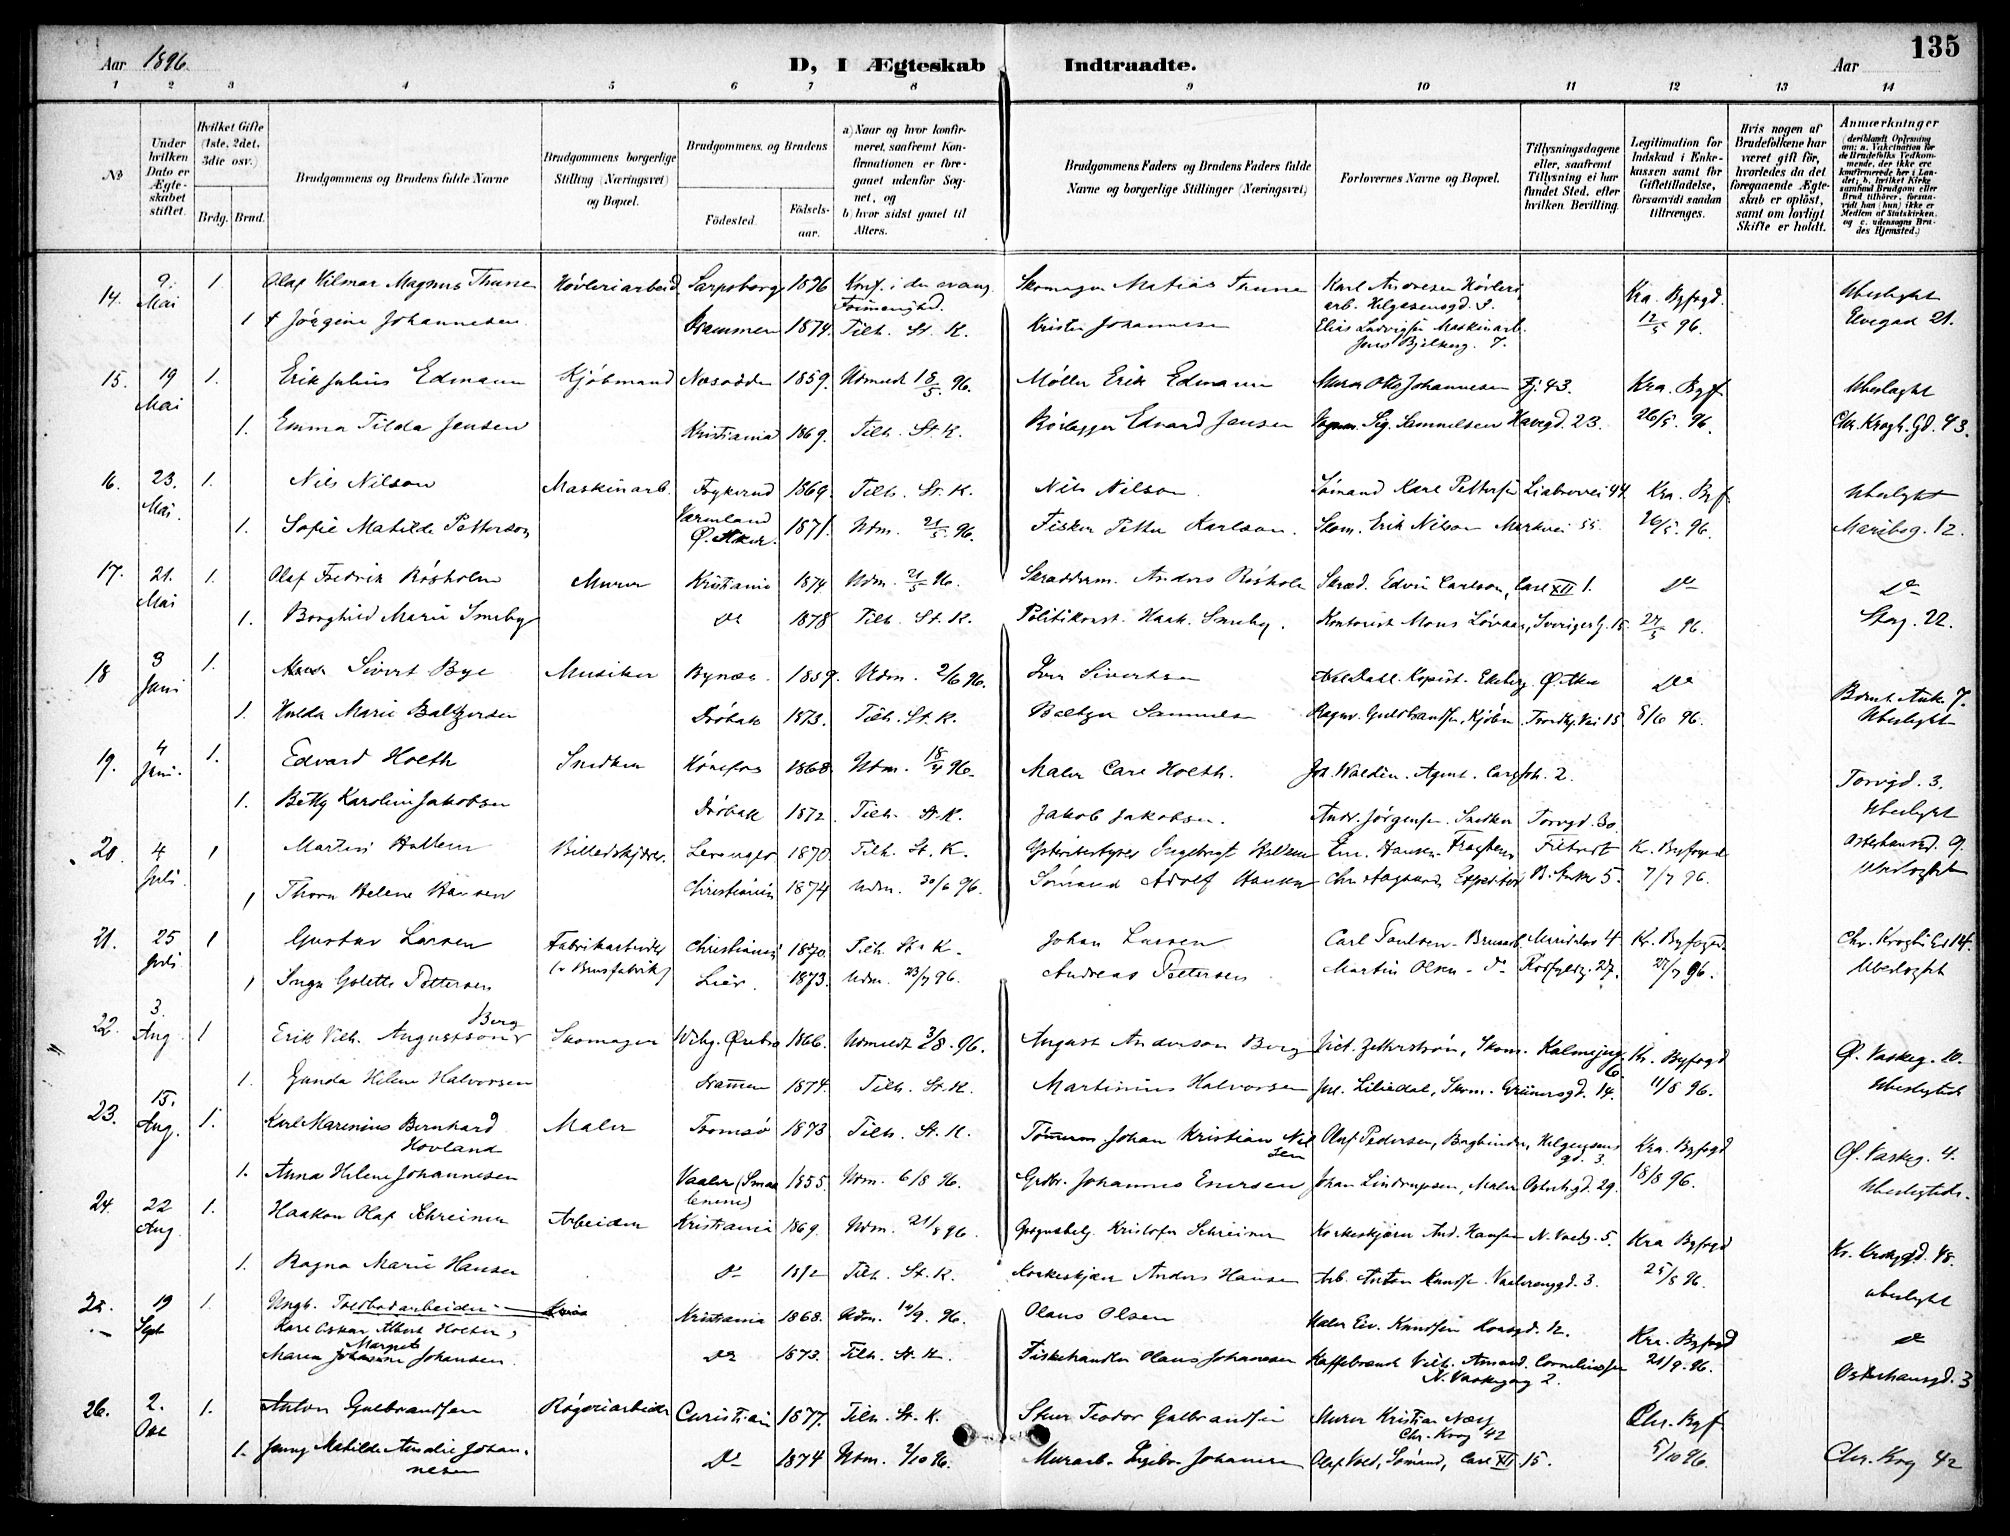 Aar 1896.
D, I Ægteskab Indtraadte.
Aar
135
1 2 3 4 5 6 7 8 9 10 11 12 13 14
No
Under hvilken Dato er Ægteskabet stiftet.
Hvilket Gifte (1ste, 2det, 3die osv.)
Brdg. Brud.
Brudgommens og Brudens fulde Navne
Brudgommens borgerlige Stilling (Næringsvei) og Bopæl.
Brudgommens og Brudens
Födested. Födsels-aar.
a) Naar og hvor konfirmeret, saafremt Konfirmationen er foregaaet udenfor Sognet, og
b) hvor sidst gaaet til Alters.
Brudgommens Faders og Brudens Faders fulde Navne og borgerlige Stillinger (Næringsvei)
Forlovernes Navne og Bopæl.
Tillysningsdagene eller, saafremt Tillysning ei har fundet Sted, efter hvilken Bevilling.
Legitimation for Indskud i Enkekassen samt for Giftetilladelse, forsaavidt saadan tiltrænges.
Hvis nogen af Brudefolkene har været gift för, hvorledes da det foregaaende Ægteskab er oplöst, samt om lovligt Skifte er holdt.
Anmærkninger (deriblandt Oplysning om: a. Vakcination for de Brudefolks Vedkommende, der ikke ere konfirmerede her i Landet; b. hvilket Kirkesamfund Brudgom eller Brud tilhörer, forsaavidt han (hun) ikke er Medlem af Statskirken, og c. udensogns Brudes Hjemsted.)
14. 9. Mai 1 Olaf Vilmar Magnus Thune Høvleriarbeid Sarpsborg 1876 Konf. i den evang. Skomager Matias Thune Karl Andresen Høvleri arb. Helgesensgd. Kra. Byfogd. Ubeslegtet
1 Jørgine Johannesen Drammen 1874. Tilh. St. K. Krister Johannesen Elias Ludvigsen Maskinarb. 12/5 96. Elvegad 21.
15. 19 Mai 1. Erik Julius Edmann Kjøbmand Næsodden 1859. Udmeldt 18/5 96. Møller Erik Edmann Murer Otto Johannesen Fj. 43. Kra. Byf Ubeslægtet
1. Emma Tilda Jensen Kristiania 1869. Tilh. St. K. Rørlægger Edvard Jensen Sig. Samuelsen Havegd. 23. 26/5 96. Chr. Krogh. Gd. 43.
16. 23. Mai. 1. Nils Nilson Maskinarb. Frykerud Værmland 1869. Tilh. St. K. Nils Nilson. Sømand Karl Pettersen Liabrovei 44. Kra. Byf Ubeslegtet
1. Sofie Matilde Petterson Ø. Aker. 1871. Udm. 21/5 96. Fisker Petter Karlson. Skom. Erik Nilson Markvei 55 26/5 96. Maribog. 12.
17. 21. Mai 1. Olaf Fredrik Røsholm Murer Kristiania 1874 Udm. 21/5 96. Skrædderm. Anders Røsholm Skræd. Edvin Carlson, Carl XII 1. Do Do
1. Borghild Marie Smeby Do 1878 Tilh. St. K. Politikonst. Haak. Smeby. Kontorist Mons Løvaas, Sverigesg. 15. 27/5 96. Storg. 22.
18 3 Juni 1. Sivert Bye Musiker Bynæs. 1859. Udm. 2/6 96. Iver Sivertsen Kopist. Ekeberg Ø. Aker Do Bernt Ank. 7.
1. Hulda Marie Baltzersen Drøbak 1873. Tilh. St. K. Baltzer Samuelsen Ragnv. Guldbrandsen, Kjøbm. 15 8/6 96. Ubeslegtet
19. 4 Juni. 1. Edvard Holth Snedker Hønefos 1868. Udm. 18/4 96. Maler Carl Holth. Joh. Waldin. Agent. 2. Torvgd. 3.
1. Betty Karoline Jakobsen Drøbak 1872. Tilh. St. K. Jakob Jakobsen. Andr. Jørgensen. Snedker Torvgd. 30. Ubeslegtet
20. 4 Juli. 1 Martin Hallem Billedskjærer. Levanger 1870. Tilh. St. K. Ysteribestyrer Ingebrigt Hallem Em. Hansen. K. Byfogd Osterhausgd. 9.
1 Thora Helene Hansen Christiania 1874 Udm. 30/6 96. Sømand Adolf Hansen Chr. Aagaard, Expeditør B. Anker 5. 7/7 96. Ubeslegtet
21. 25 Juli 1 Gustav Larsen Fabrikarbeider (v Brusfabrik) Christiania 1870. Tilh. St. K. Johan Larsen Carl Poulsen - Brusarb. Maridalsv 4 Kr. Byfogd. Chr. Kroghs Gd 14.
1 Inga Golette Pettersen Lier. 1873. Udm. 23/7 96. Andreas Pettersen Martin Olsen - do 27. 27/7 96. Ubeslegtet
22. 3. Aug 1 Erik Vilh. Augustson Berg Skomager Viby. Ørebro 1866. Udmeldt 3/8. 96. August Anderson Berg Vict. Zetterstrøm, Skom. Kalmejerg. 6 Kr. Byfogd Ø. Vaskeg. 10.
1. Gunda Helene Halvorsen Drammen 1874. Tilh. St. K. Martinius Halvorsen Jul. Liliedal, Skom. Grünersgd. 14. 11/8 96. Ubeslegtede
23. 15. Aug. 1. Karl Marenius Bernhard Hovland Maler Tromsø 1873 Tilh. St. K. Tømmerm. Johan Kristian Nilsen Olaf Pedersen, Bogbinder, Helgesens gd. 3. Kra. Byfogd Ø. Vaskeg. 4.
1. Anna Helene Johannesen Vaaler (Smaalenene) 1855. Udm. 6/8 96. Grdbr. Johannes Enersen Johan Lindrupsen, Maler Osterhsgd. 29. 18/8 96. Ubeslegtede.
24. 22 Aug 1. Haakon Olaf Schreiner Arbeider Kristiania 1869. Udm. 21/8 96. Kristofer Schreiner Korkeskjærer And. Hansen N. Voldg. 5. Kra Byfogd Kr. Kroghgd. 48.
1. Ragna Marie Hansen Do 1872 Tilh. St. K. Korkeskjær Anders Hansen Arb. Anton Knudsen Vaalerenggd. 3. 25/8 96. Ubeslegtet
25. 19 Sept 1. Ungk. Toldbodarbeider Karl Oskar Albert Holten, Kristiania 1868. Udm. 14/9. 96. Olaus Olsen Maler Eiv. Knudsen 12. Kra. Byfogd Do
Maren Margrete Johansen. Do 1873. Tilh. St. K. Fiskehandler Olaus Johansen Kaffebrænder Vilh. Amand. Corneliussen N. Vaskegang 2. 21/9. 96. Osterhausgd. 3
26. 2. Okt 1. Anton Gulbrandsen Røgeriarbeider Christian 1877. Tilh. St. K. Stuer Teodor Gulbrandsen Murer Kristian Næss Chr. Krog 42 Chr. Byf
1. Jenny Matilde Amalie Johannesen Do 1874 Udm. 2/10 96. Murarb. Ingebr. Johannesen Olaf Vold, Sømand, Carl XII 15. 5/10 96. Chr. Krog 42